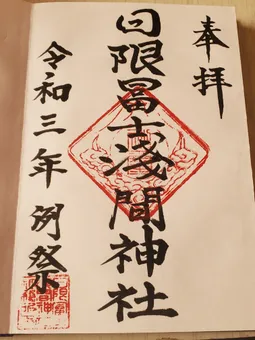 奉拝
日限冨士淺間神社
令和三年 例祭